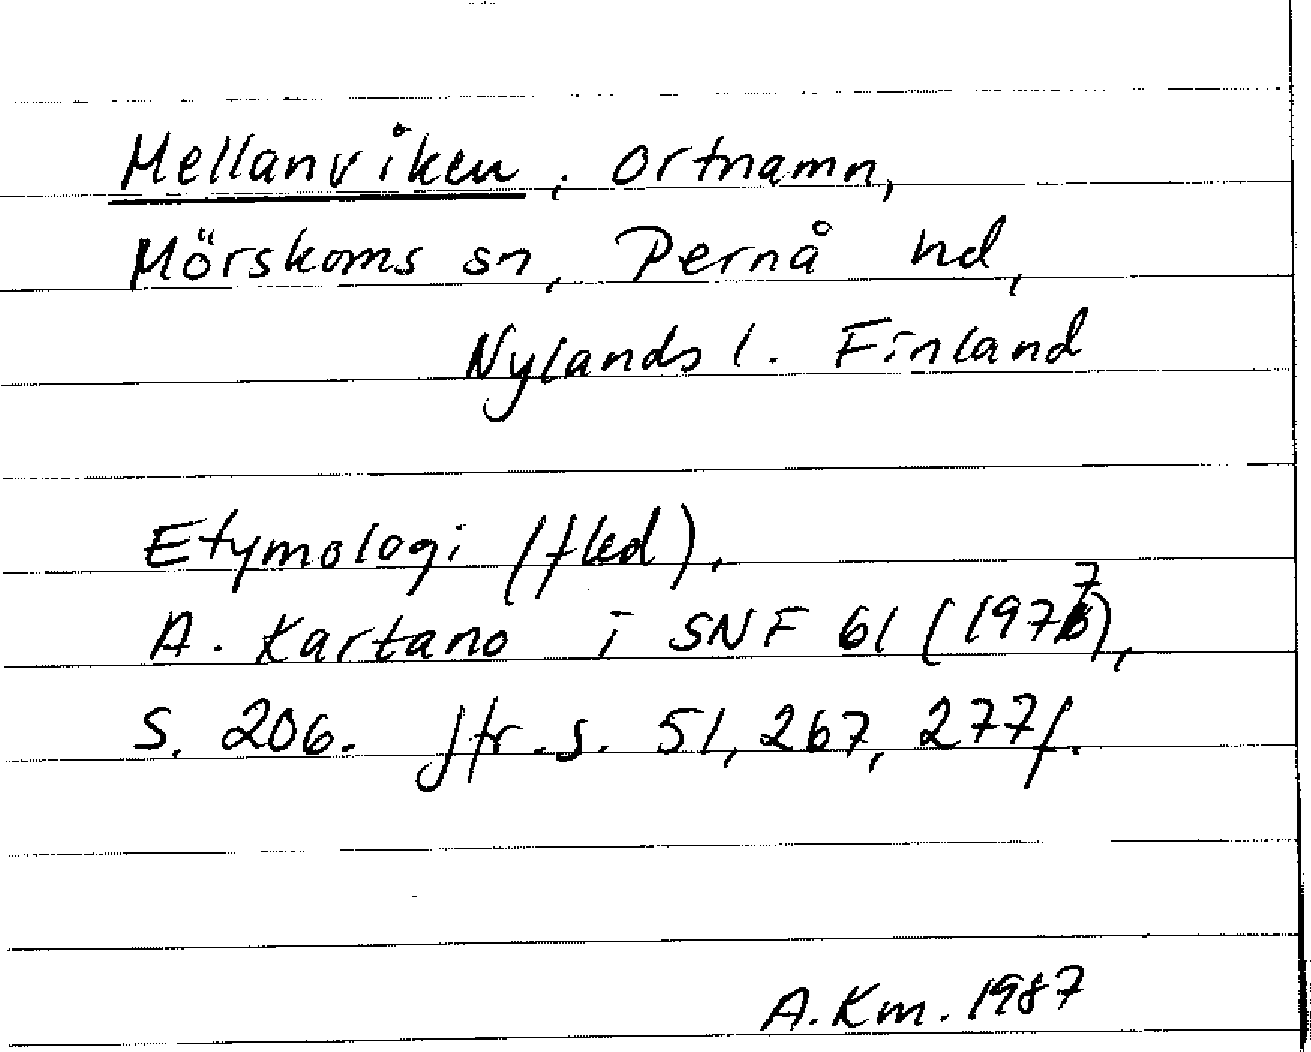 Mellanviken, ortnamn,
Mörskoms sn, Pernå hd,
Nylands l. Finland
Etymologi (fled),
A. Kartano i SNF 61 (1977),
S. 206. Jfr. s. 51, 267, 277f.
A. Km. 1987